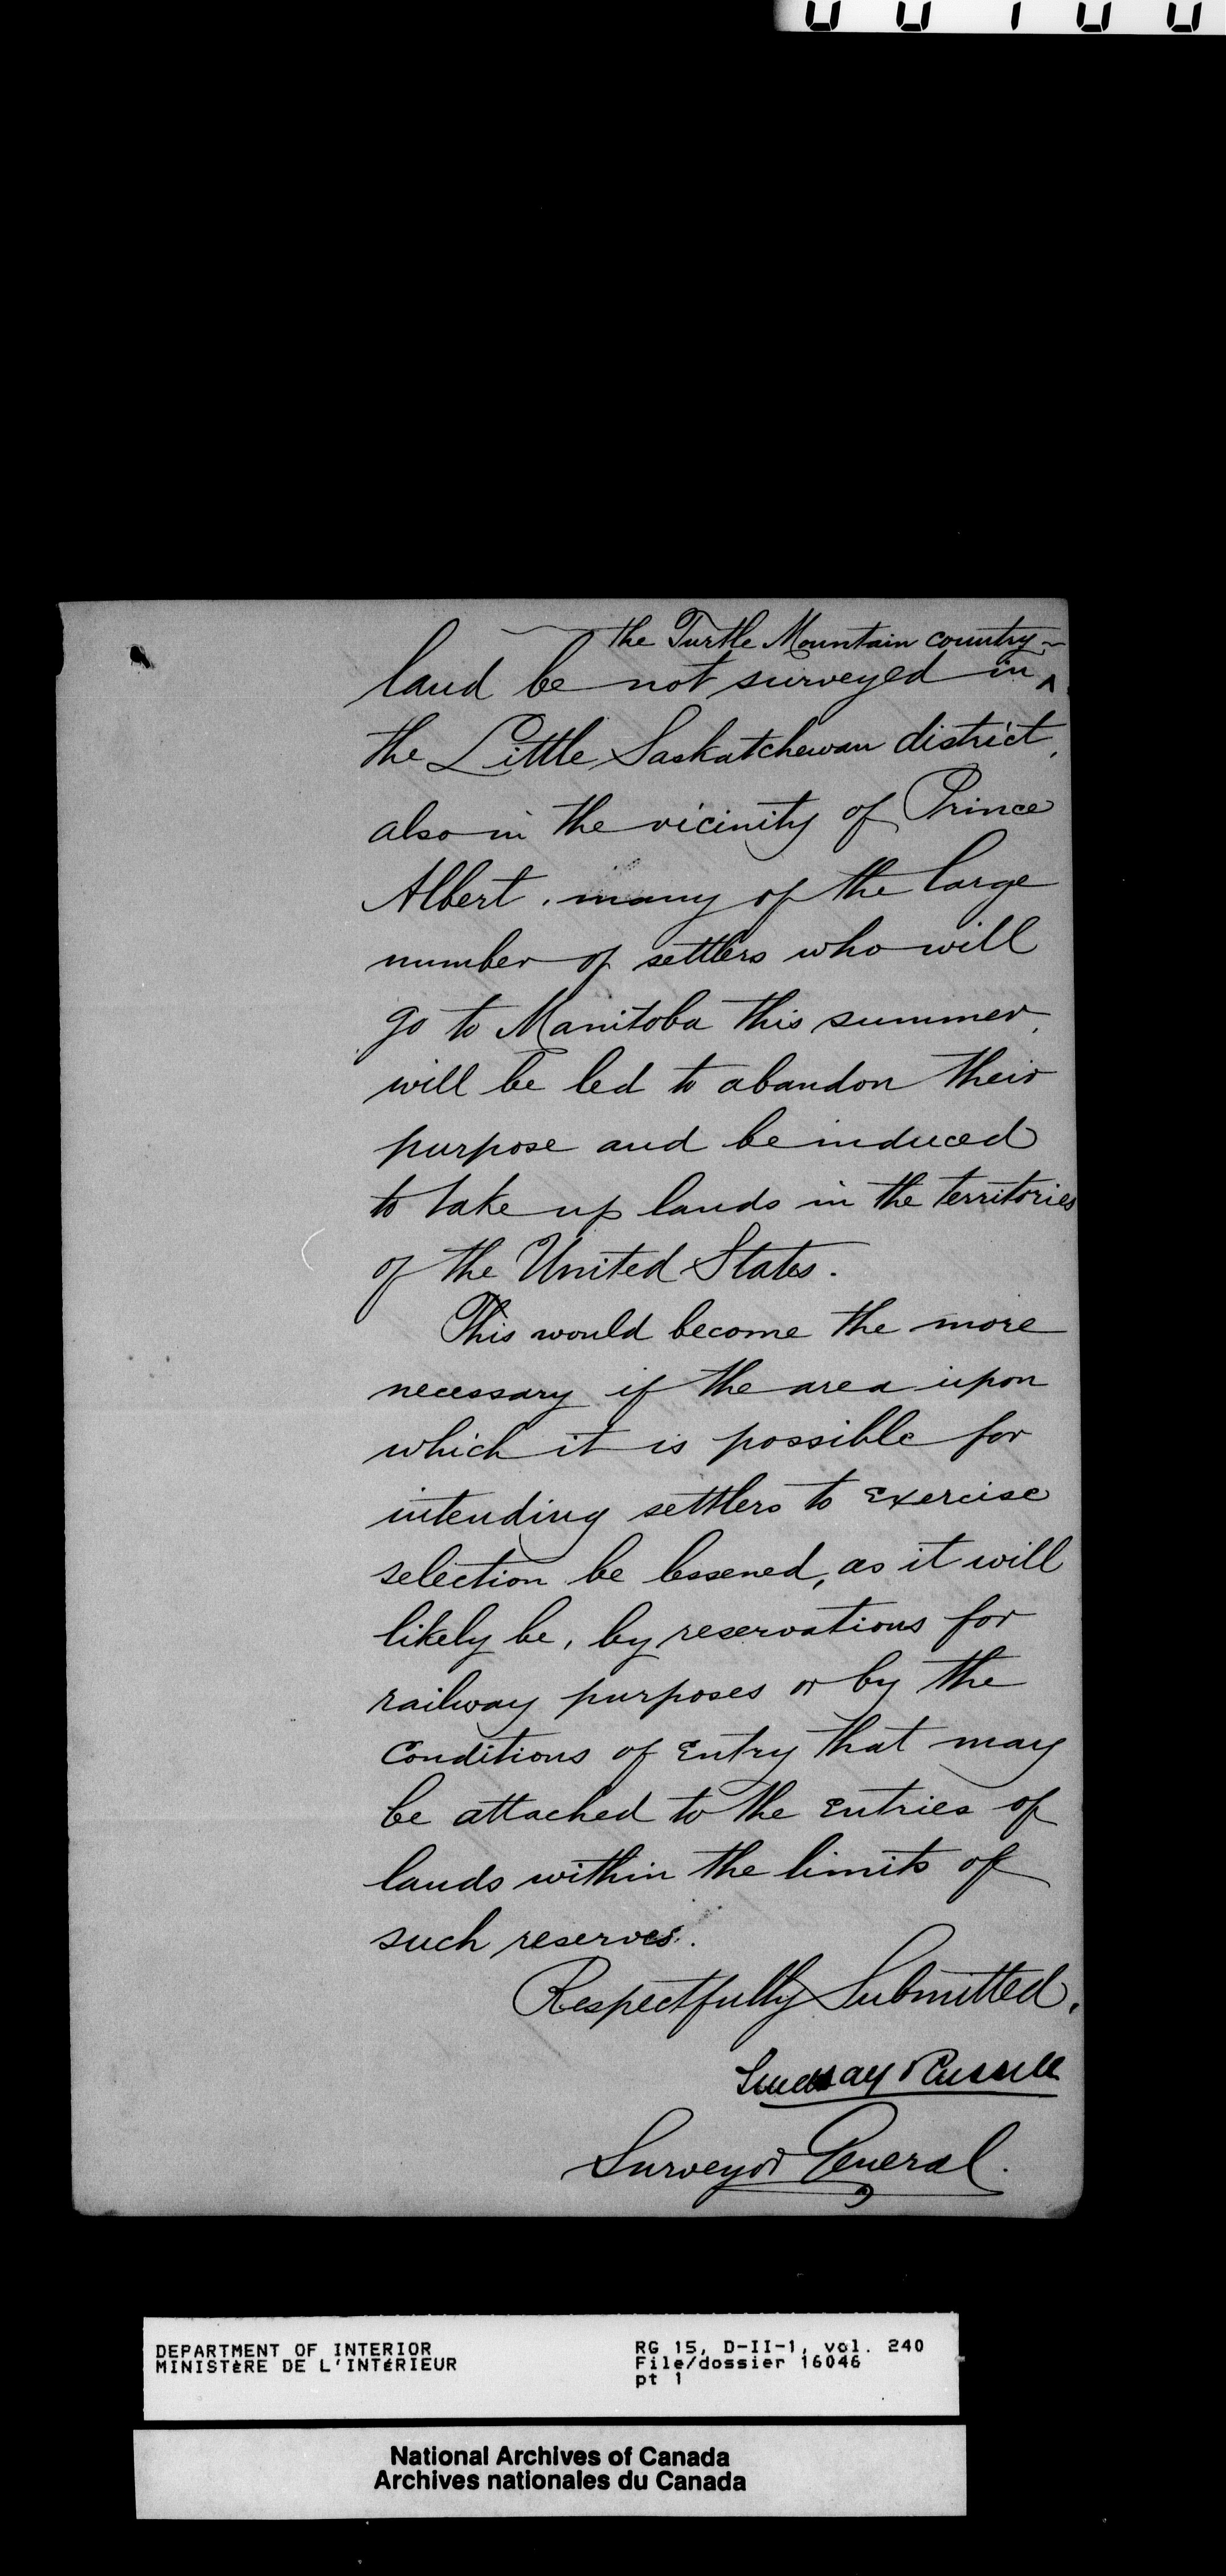 the Turtle Mountain country
land be not surveyed in ^
the Little Saskatchewan district,
also in the vicinity of Prince
Albert, many of the large
number of settlers who will
go to Manitoba this summer,
will be led to abandon their
purpose and be induced
to take up lands in the territories
of the United States.
This would become the more
necessary if the area upon
which it is possible for
intending settlers to exercise
selection be lessened, as it will
likely be, by reservations for
railway purposes or by the
Conditions of Entry that may
be attached to the Entries of
lands within the limits of
such reserves.
Respectfully Submitted,
Lindsay Russell
Surveyor General.
DEPARTMENT OF INTERIOR
MINISTÈRE DE L'INTÉRIEUR
RG 15, D-II-1, vol. 240
File/dossier 16046
pt 1
National Archives of Canada
Archives nationales du Canada